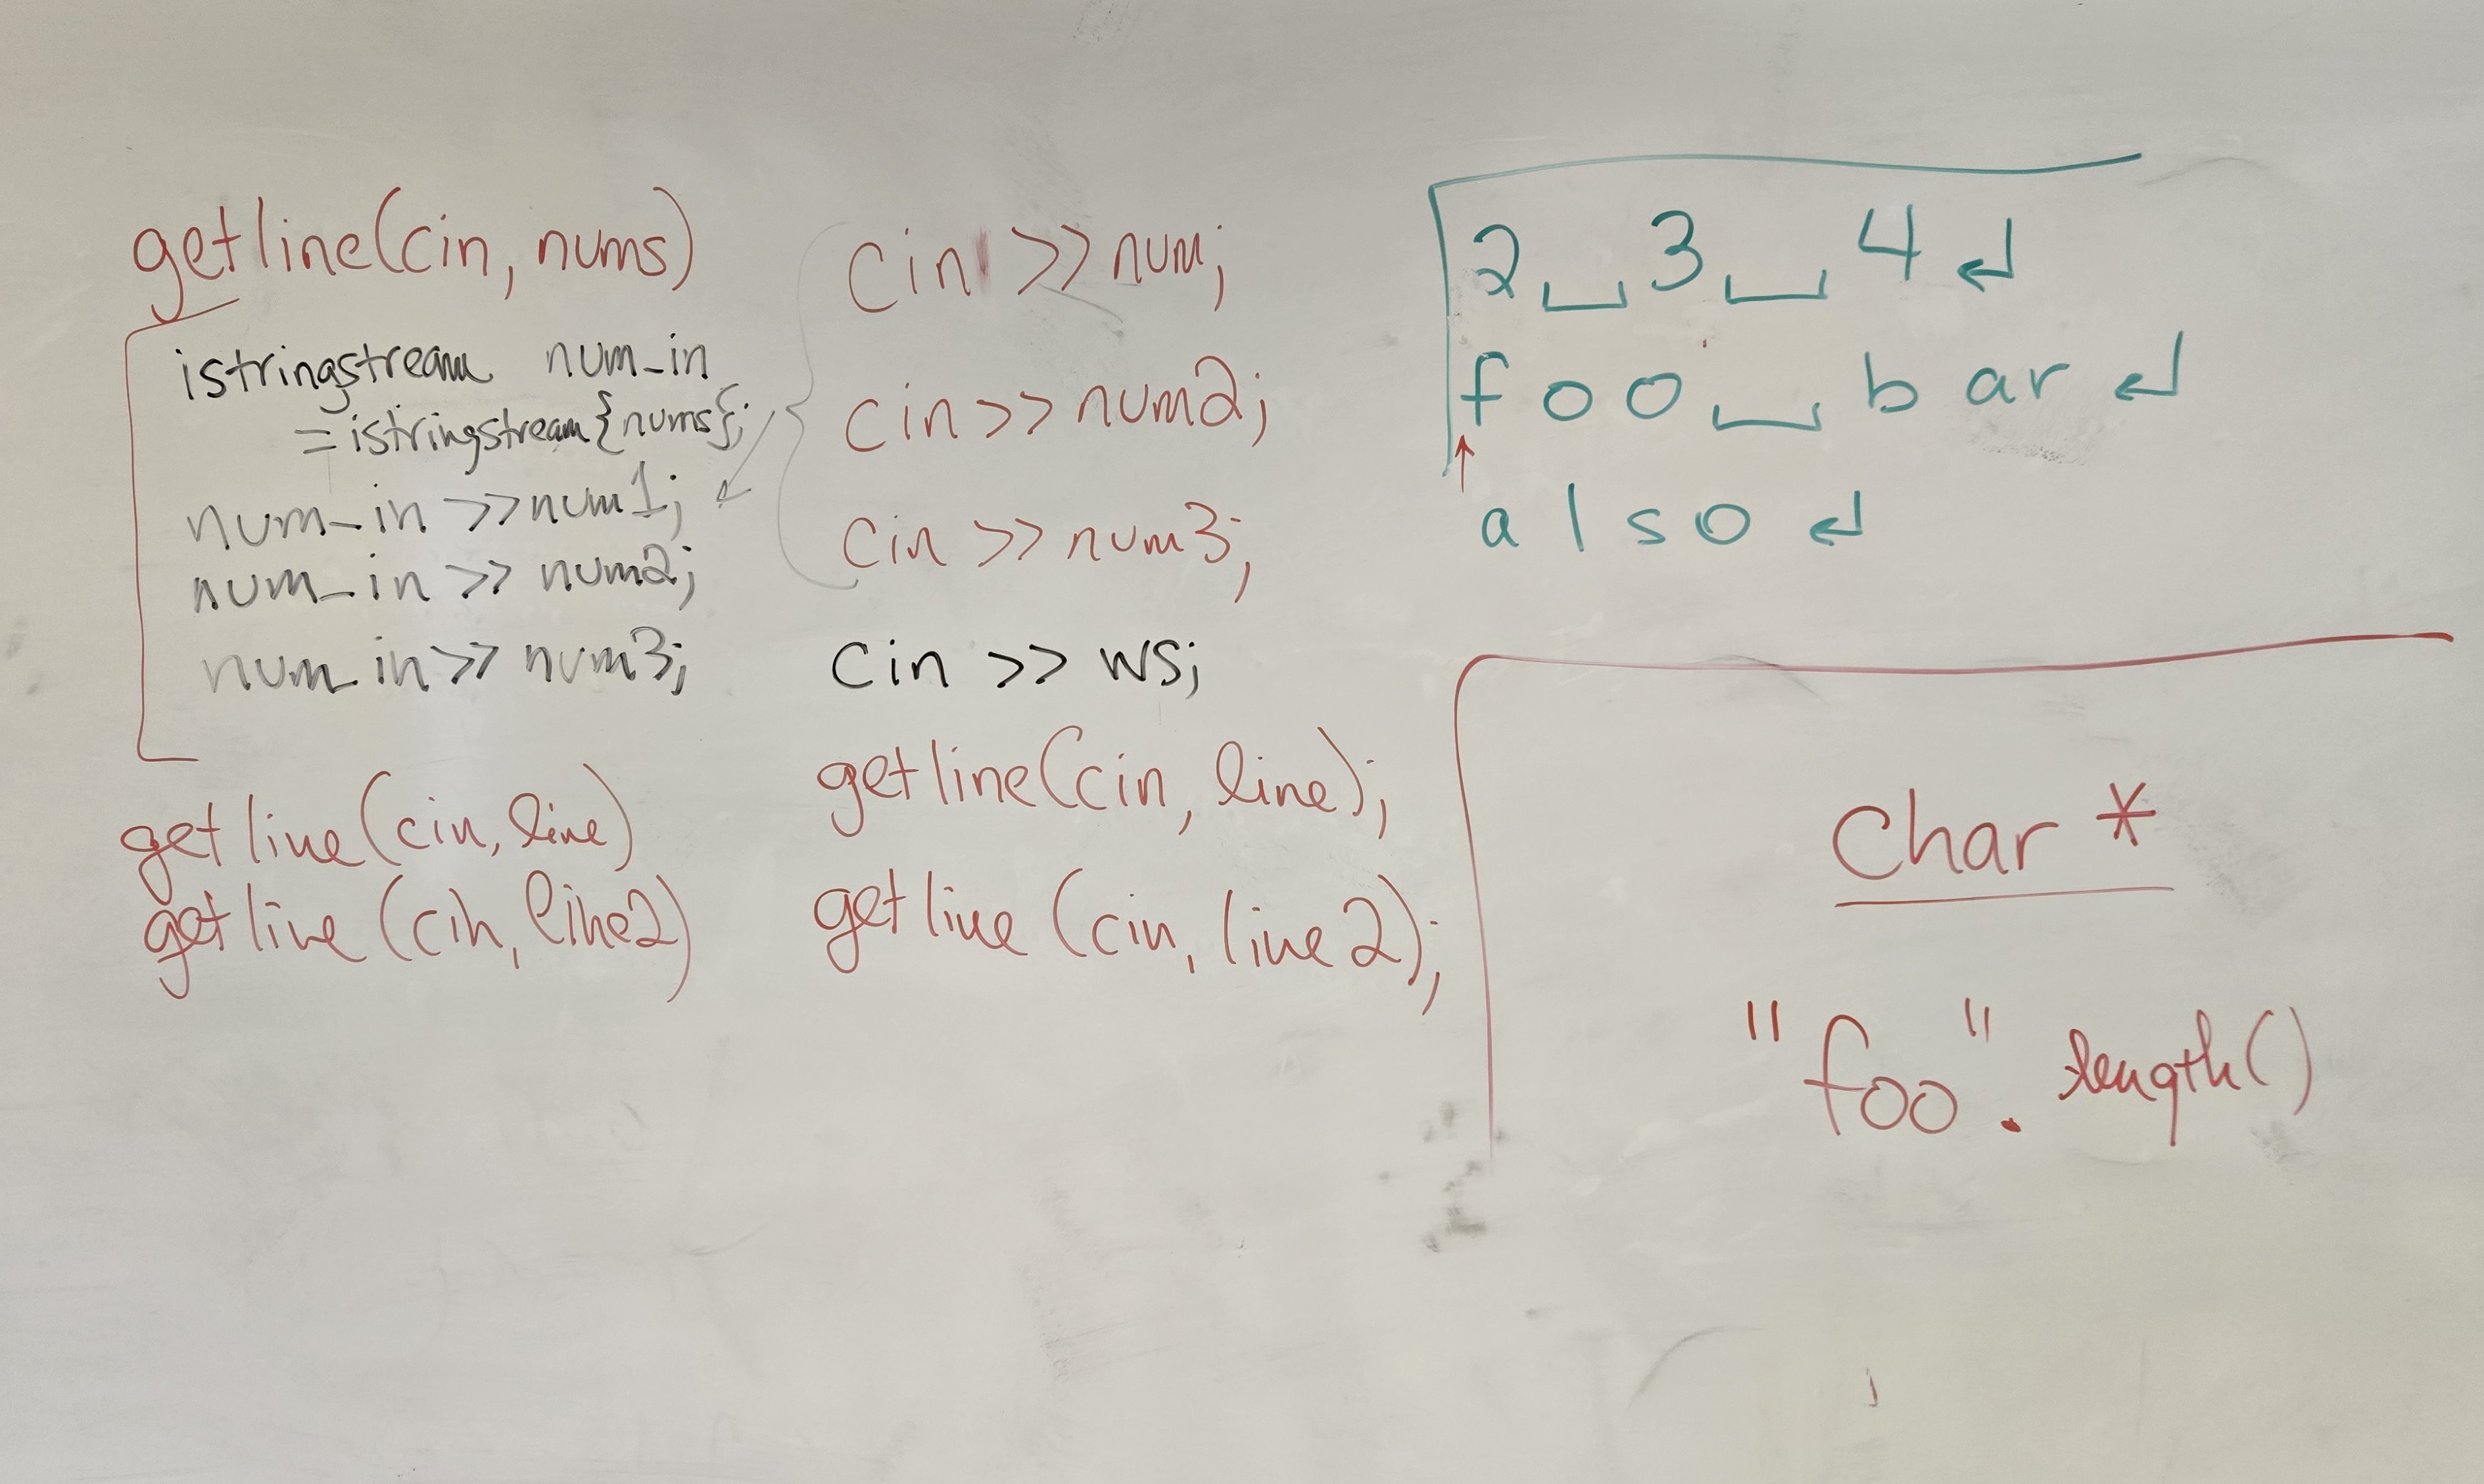 getline(cin, nums)
istringstream num_in
= istringstream{nums};
num_in >> num1;
num_in >> num2;
num_in >> num3;
getline(cin, line)
getline(cin, line2)
cin >> num;
cin >> num2;
cin >> num3;
cin >> ws;
getline(cin, line);
getline(cin, line2);
2␣3␣4↵
foo␣bar↵
↑
also↵
char *
"foo".length()